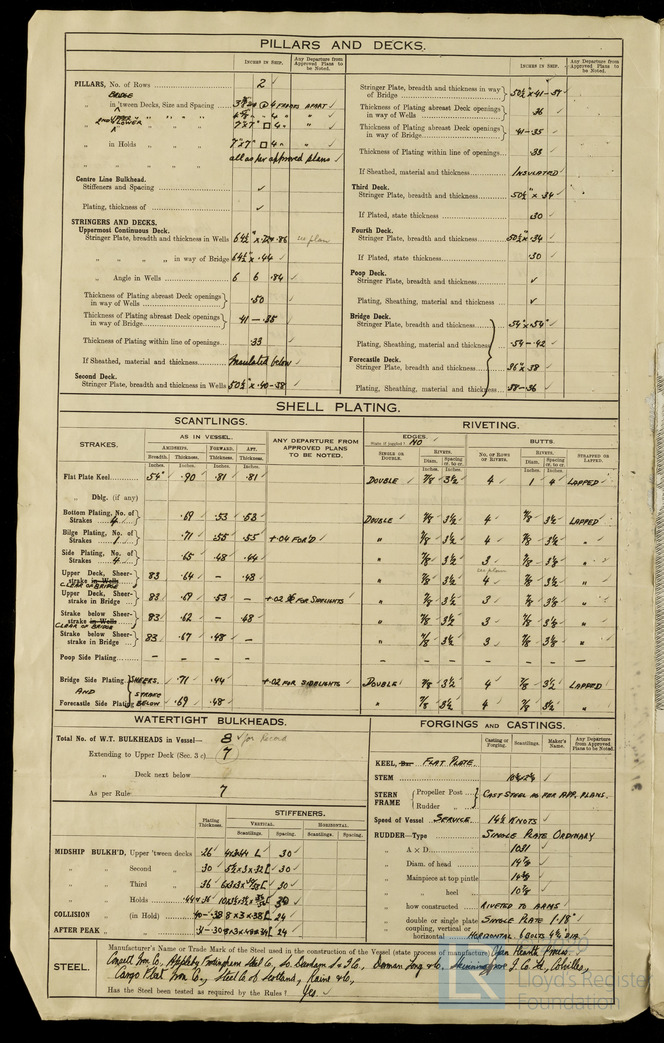 PILLARS AND DECKS.
INCHES IN SHIP. Any Departure from Approved Plans to be Noted.
PILLARS, No. of Rows 2
BRIDGE
„ in 'tween Decks, Size and Spacing 4 FRAMES APART
„ in Holds 7"x7" □ 4 „ „
all as per approved plans
Centre Line Bulkhead.
Stiffeners and Spacing
Plating, thickness of
STRINGERS AND DECKS.
Uppermost Continuous Deck.
Stringer Plate, breadth and thickness in Wells see plan
„ „ „ „ in way of Bridge 64½" x .44
„ Angle in Wells 6 6 .84
Thickness of Plating abreast Deck openings in way of Wells .50
Thickness of Plating abreast Deck openings in way of Bridge .41 — .35
Thickness of Plating within line of openings .33
If Sheathed, material and thickness Insulated below
Second Deck.
Stringer Plate, breadth and thickness in Wells 50½ x .40-.38
INCHES IN SHIP. Any Departure from Approved Plans to be Noted.
Stringer Plate, breadth and thickness in way of Bridge
Thickness of Plating abreast Deck openings in way of Wells .36
Thickness of Plating abreast Deck openings in way of Bridge .41-.35
Thickness of Plating within line of openings .33
If Sheathed, material and thickness INSULATED
Third Deck.
Stringer Plate, breadth and thickness 50½" x .34
If Plated, state thickness .30
Fourth Deck.
Stringer Plate, breadth and thickness 50½ x .34
If Plated, state thickness .30
Poop Deck.
Stringer Plate, breadth and thickness
Plating, Sheathing, material and thickness
Bridge Deck.
Stringer Plate, breadth and thickness 54" x .54"
Plating, Sheathing, material and thickness .54-.42
Forecastle Deck.
Stringer Plate, breadth and thickness 36" x .38
Plating, Sheathing, material and thickness .38-.36
SHELL PLATING.
SCANTLINGS. RIVETING.
STRAKES. AS IN VESSEL. ANY DEPARTURE FROM APPROVED PLANS TO BE NOTED. EDGES. NO BUTTS.
AMIDSHIPS. FORWARD. AFT. SINGLE OR DOUBLE. RIVETS. NO. OF ROWS OF RIVETS. RIVETS. STRAPPED OR LAPPED.
Breadth. Thickness. Thickness. Thickness. Diam. Spacing cr. to cr. Diam. Spacing cr. to cr.
Inches. Inches. Inches. Inches. Inches. Inches. Inches. Inches.
Flat Plate Keel 54" .90 .81 .81 DOUBLE 7/8 3½ 4 1 4 LAPPED
„ Dblg. (if any)
Bottom Plating, No. of Strakes 4 .69 .53 .53 DOUBLE 7/8 3½ 4 7/8 3½ LAPPED
Bilge Plating, No. of Strakes 1 .71 .55 .55 +.04 FOR'D „ 7/8 3½ 4 7/8 3½ „
Side Plating, No. of Strakes 4 .65 .48 .44 „ 7/8 3½ 3 7/8 „
see plan
Upper Deck, Sheer-strake in Wells CLEAR OF BRIDGE 83 .64 – .48 „ 7/8 3½ 4 7/8 „
Upper Deck, Sheer-strake in Bridge 83 .69 .53 – +.02 FOR SIDELIGHTS „ 7/8 3½ 3 7/8 „
Strake below Sheer-strake in Wells CLEAR OF BRIDGE 83 .62 – .48 „ 7/8 3½ 3 7/8 „
Strake below Sheer-strake in Bridge 83 .67 .48 – „ 7/8 3½ 3 7/8 „
Poop Side Plating – – – – – – – – – – –
Bridge Side Plating SHEERS. .71 .44 +.02 FOR SIDELIGHTS DOUBLE 7/8 3½ 4 7/8 3½ LAPPED
AND STRAKE
Forecastle Side Plating BELOW .69 .48 „ 7/8 3½ 4 7/8 3½ „
WATERTIGHT BULKHEADS.
Total No. of W.T. BULKHEADS in Vessel— 8 for Record
Extending to Upper Deck (Sec. 3 c) 7
„ Deck next below
As per Rule 7
Plating Thickness. STIFFENERS.
VERTICAL. HORIZONTAL.
Scantlings. Spacing. Scantlings. Spacing.
MIDSHIP BULKH'D, Upper 'tween decks .26 30
„ „ Second „ .30 30
„ „ Third „ .36 30
„ „ Holds 30
COLLISION „ (in Hold) .40-.38 24
AFTER PEAK „ „ 24
FORGINGS AND CASTINGS.
Casting or Forging. Scantlings. Maker's Name. Any Departure from Approved Plans to be Noted.
KEEL, Bar FLAT PLATE
STEM
STERN FRAME Propeller Post CAST STEEL AS PER APP. PLANS.
Rudder „
Speed of Vessel SERVICE 14½ KNOTS
RUDDER—Type SINGLE PLATE ORDINARY
„ A x D 1031
„ Diam. of head
„ Mainpiece at top pintle
„ „ heel
„ how constructed RIVETED TO ARMS
„ double or single plate SINGLE PLATE 1.18"
„ coupling, vertical or horizontal HORIZONTAL 6 BOLTS DIA.
STEEL.
Manufacturer's Name or Trade Mark of the Steel used in the construction of the Vessel (state process of manufacture) Open Hearth Process
Consett Iron Co, Appleby Frodingham Steel Co, So. Durham S & I Co, Dorman Long & Co, Skinningrove I. Co Ld, Colvilles,
Cargo Fleet Iron Co, Steel Co of Scotland, Rains & Co,
Has the Steel been tested as required by the Rules? Yes.
LR
Lloyd's Register
Foundation